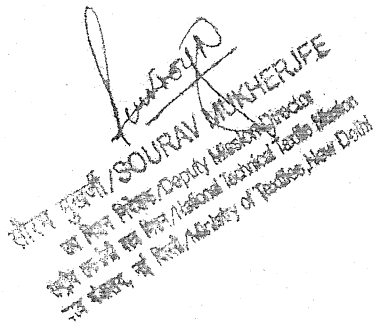 सौरव मुखर्जी/SOURAV MUKHERJEE
उप मिशन निदेशक/Deputy Mission Director
राष्ट्रीय तकनीकी वस्त्र मिशन/National Technical Textile Mission
वस्त्र मंत्रालय, नई दिल्ली/Ministry of Textiles, New Delhi